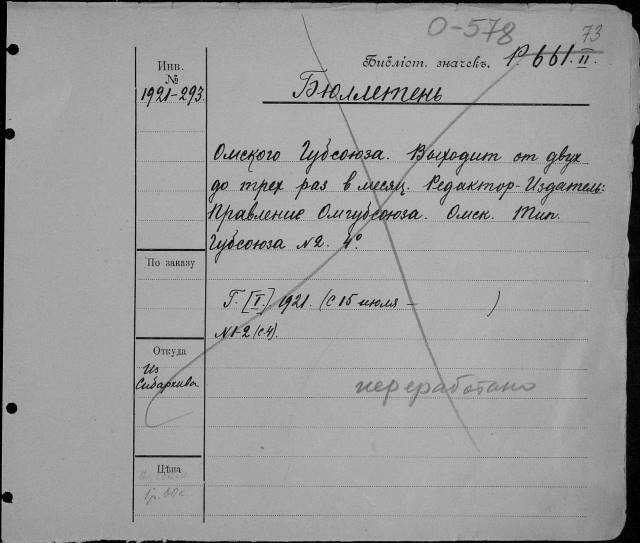 О-578
73
Инв.
№
1921-293.
Библіот. значекъ. Р. 661. II.
Бюллетень
Омского Губсоюза. Выходит от двух
до трех раз в месяц. Редактор-Издатель:
Правление Омгубсоюза. Омск. Тип.
Губсоюза №2. 4°.
По заказу
Г. [I.] 1921. (с 15 июля — )
№1-2 (с.4).
Откуда
Из
Сибархива
переработано
Цѣна
1р. 60к